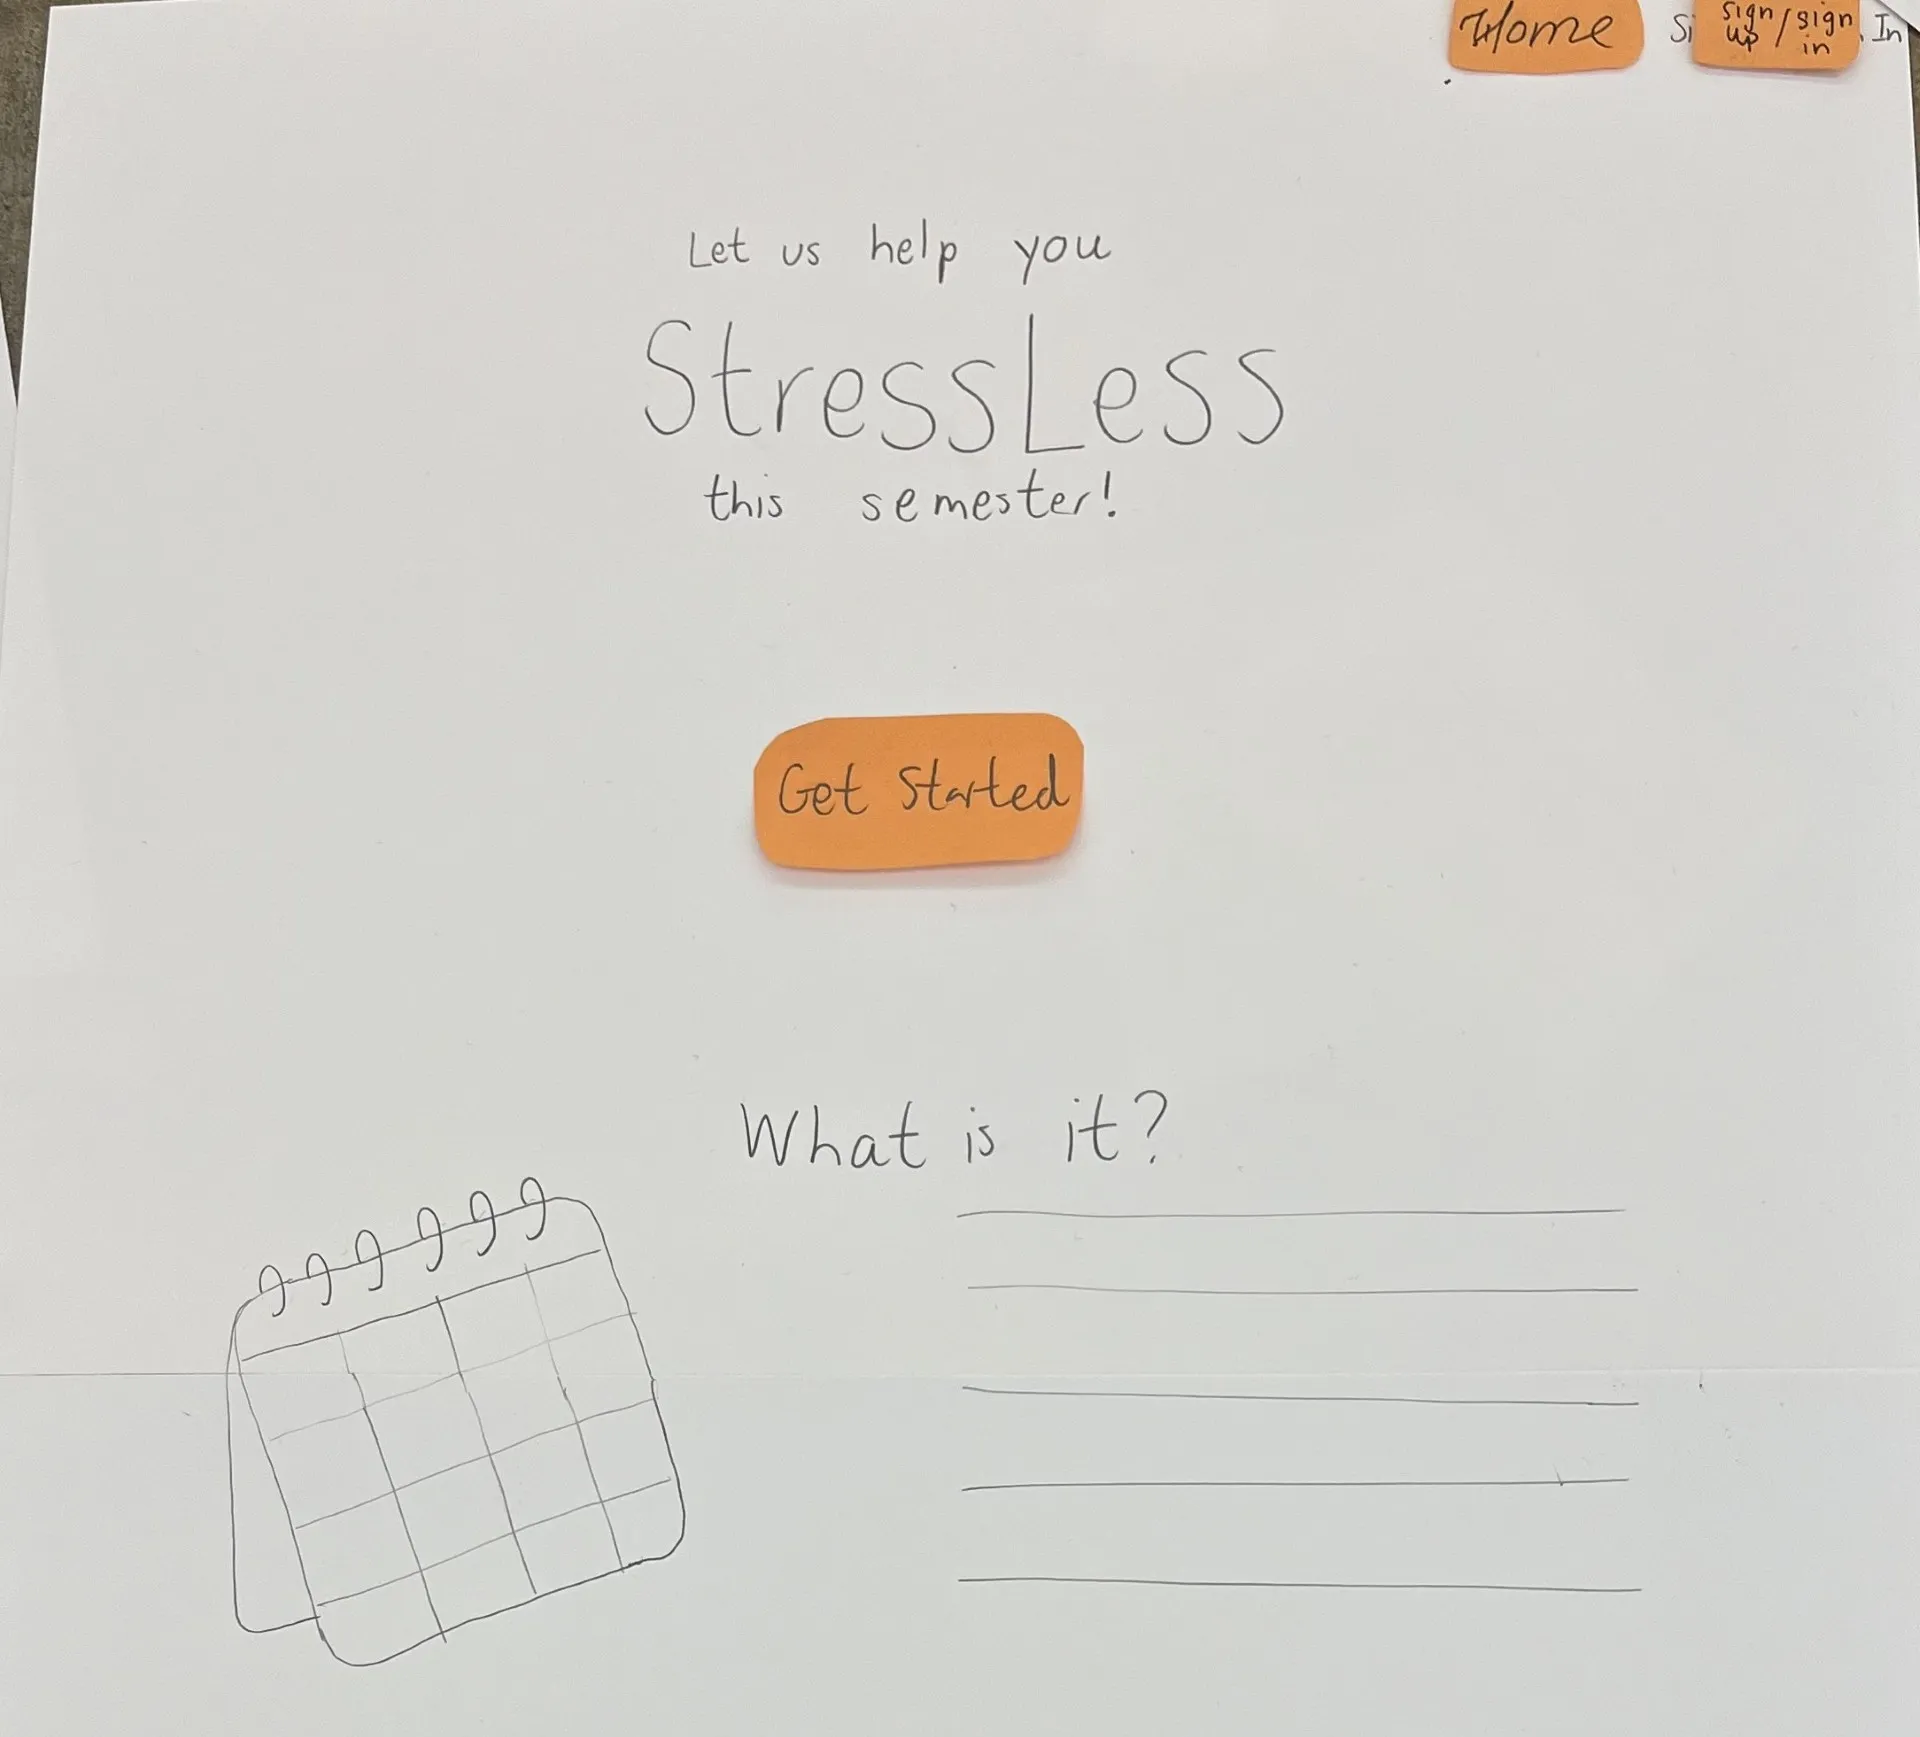 Home
Si
sign up / sign in
In
Let us help you
StressLess
this semester!
Get Started
What is it?